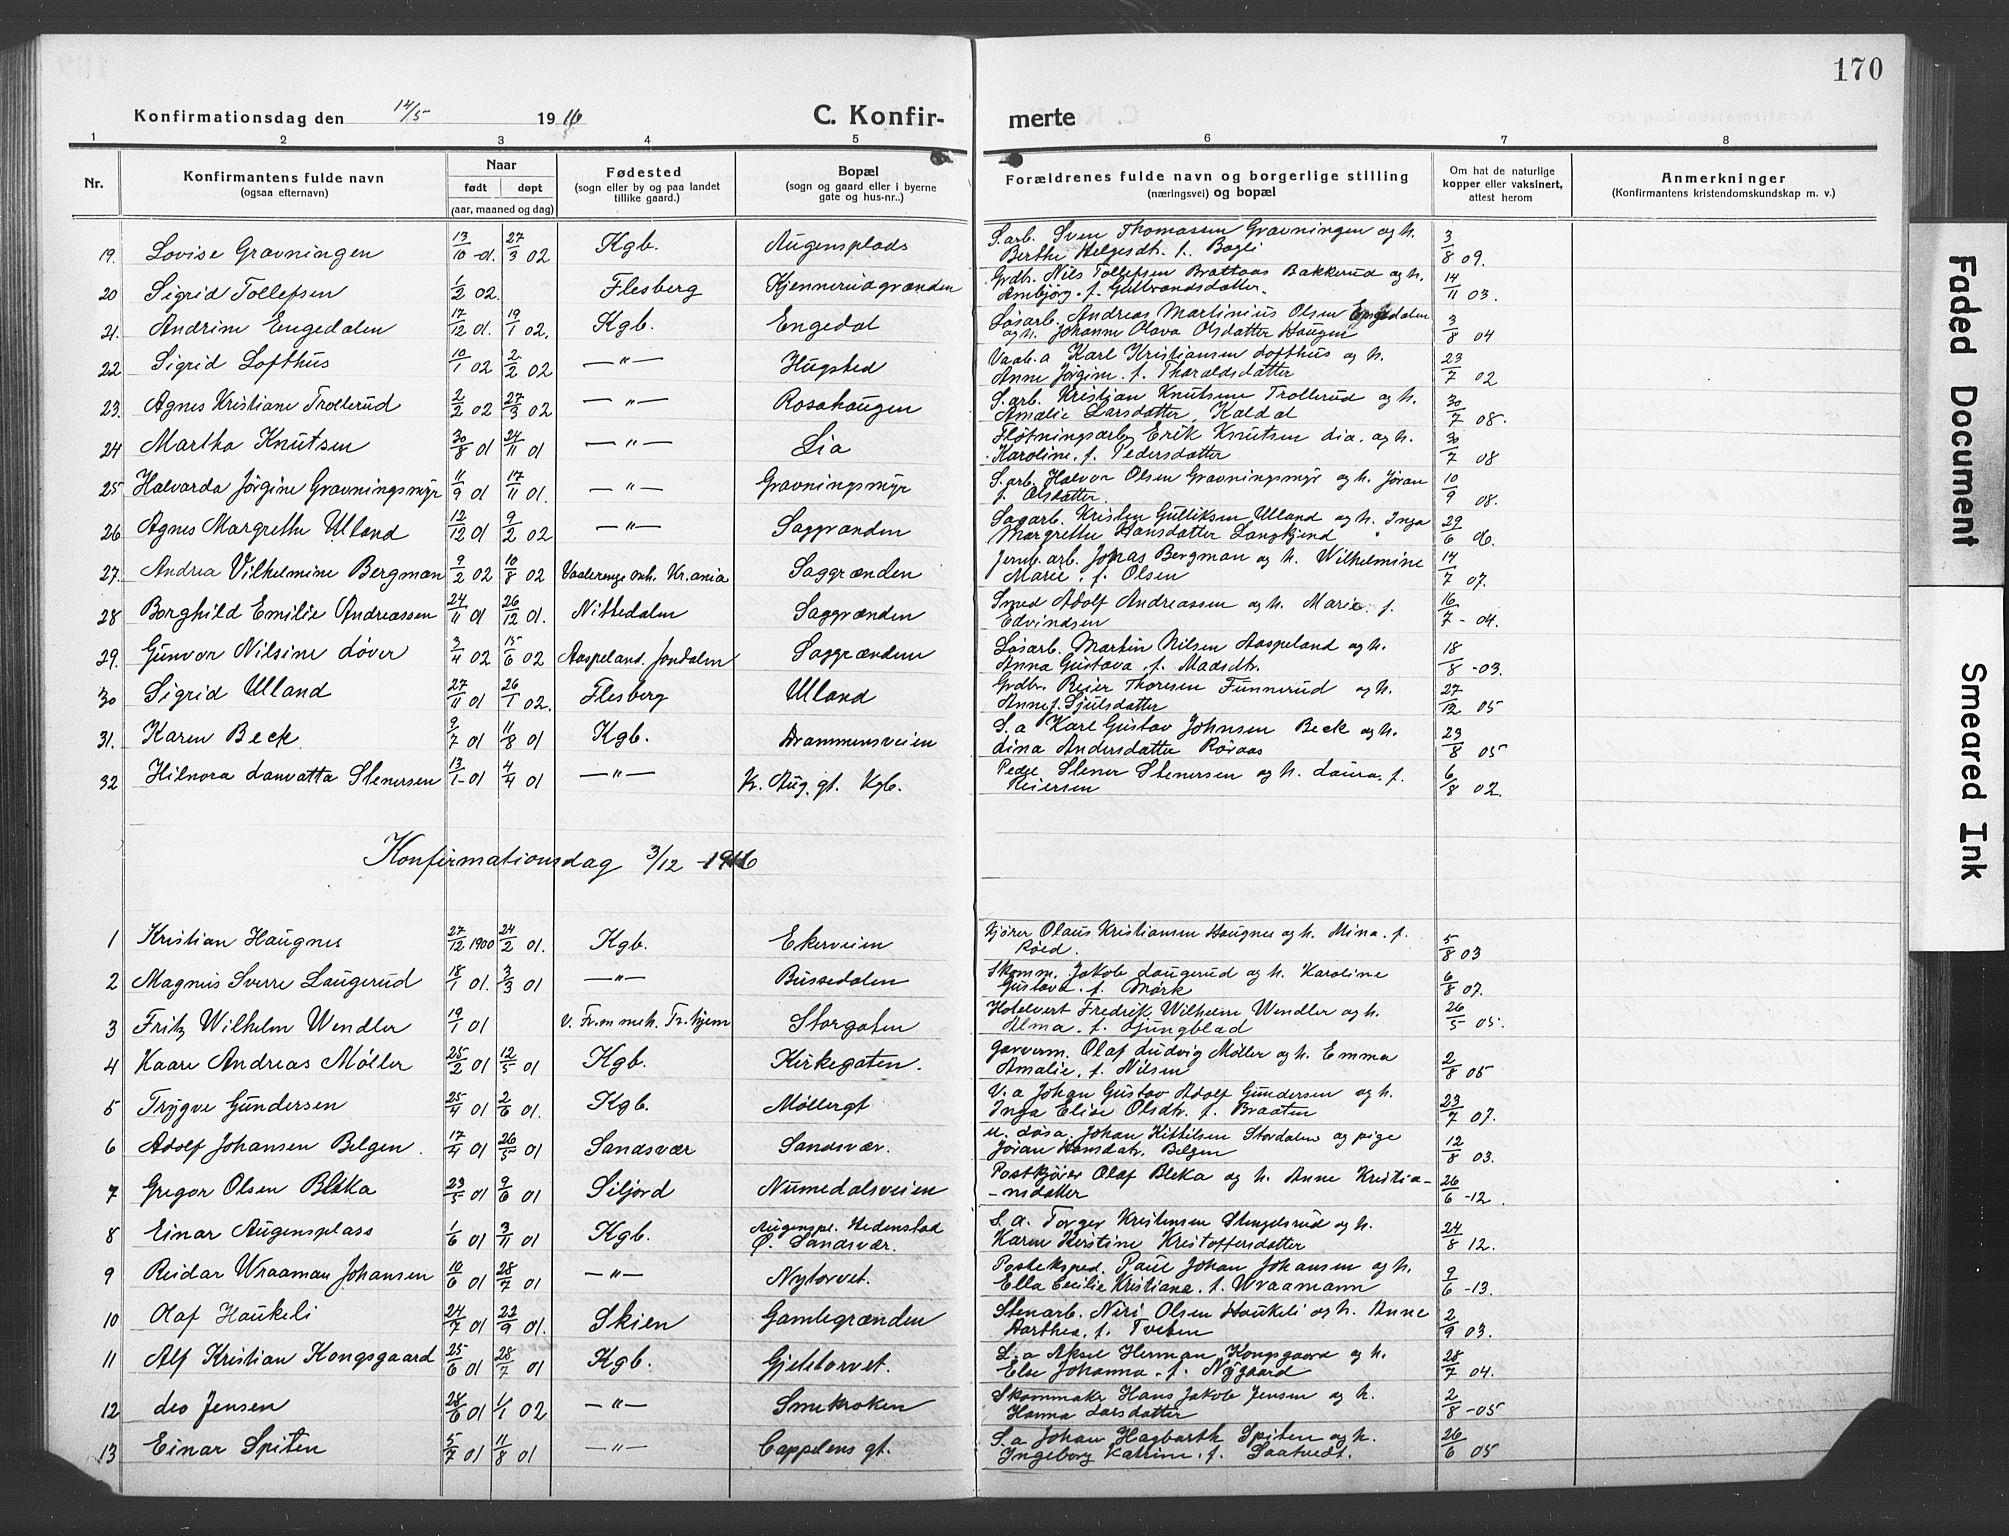 170
Konfirmationsdag den 14/5 1916 C. Konfirmerte
1 2 3 4 5 6 7 8
Nr. Konfirmantens fulde navn (ogsaa efternavn) Naar født døpt (aar, maaned og dag) Fødested (sogn eller by og paa landet tillike gaard.) Bopæl (sogn og gaard eller i byerne gate og hus-nr..) Forældrenes fulde navn og borgerlige stilling (næringsvei) og bopæl Om hat de naturlige kopper eller vaksinert, attest herom Anmerkninger (Konfirmantens kristendomskundskap m. v.)
19. Lovise Gravningen 13/10 01. 27/3 02 Kgb. Augensplads S.arb. Sven Thomassen Gravningen og h. Berthe Helgesdt. f. Bogli 3/8 09.
20 Sigrid Tollefsen 1/2 02. Flesberg Kjennerudgrænden Grdbr. Nils Tollefsen Brattaas Bakkerud og h. Ambjørg. f. Gulbrandsdatter. 14/11 03.
21. Andrine Engedalen 17/12 01. 19/1 02. Kgb. Engedal Løsarb. Andreas Martinius Olsen Engedalen og h. Johanne Olava Olsdatter Haugen 3/8 04
22 Sigrid Lofthus 10/1 02 2/2 02 —"— Hugsted Vaab.a Karl Kristiansen Lofthus og h. Anne Jørgine. f. Tharaldsdatter 23/7 02
23. Agnes Kristiane Trollerud 2/2 02 27/3 02 —"— Rosahaugen S.arb. Kristian Knutsen Trollerud og h. Amalie Larsdatter Kaldal 30/7 08.
24 Martha Knutsen 30/8 01 24/11 01 —"— Lia Fløtningsarb. Erik Knutsen Lia. og h. Karoline. f. Pedersdatter 30/7 08
25 Halvarda Jørgine Gravningsmyr 11/9 01 17/11 01. —"— Gravningsmyr S.arb. Halvor Olsen Gravningsmyr og h. Jøran f. Olsdatter 10/9 08.
26 Agnes Margrethe Ulland 12/12 01 9/2 02 —"— Saggrænden Sagarb. Kristen Gulliksen Ulland og h. Inga Margrethe Hansdatter Langkjend 29/6 06.
27. Andrea Vilhelmine Bergman 9/2 02 10/8 02 Vaalerenge mh. Kr.ania Saggrænden Jernb.arb. Jonas Bergman og h. Wilhelmine Marie. f. Olsen 14/7 07.
28 Borghild Emilie Andreassen 24/11 01 26/12 01. Nittedalen Saggrænden Smed Adolf Andreassen og h. Marie. f. Edvindsen 16/7 - 04.
29. Gunvor Nilsine Løver 3/4 02 15/6 02 Aaspeland. Jondalen Saggrænden Løsarb. Martin Nilsen Aaspeland og h. Anna Gustava. f. Madsdtr. 18/8 - 03.
30 Sigrid Ulland 27/11 01 26/1 02. Flesberg Ulland Grdbr. Reier Thoresen Funnerud og h. Anne f. Sjulsdatter 27/12 05
31. Karen Beck 9/7 01 11/8 01 Kgb. Drammensveien S.a Karl Gustav Johnsen Beck og h. Lina Andersdatter Røraas 23/8 05
32 Hilnora Lauvatta Stenersen 13/1 01 4/4 01 —"— Kr. Aug. gt. Kgb. Stener Stenersen og h. Laura. f. Reiersen 6/8 02.
Konfirmationsdag 3/12 1916
1 Kristian Haugnes 27/12 1900 24/2 01. Kgb. Ekerveien Kjører Olaus Kristiansen Haugnes og h. Mina. f. Røed. 5/8 03
2 Magnus Sverre Laugerud 18/1 01. 3/3 01 —"— Bussedalen Skomm. Jakob Laugerud og h. Karoline Gustava. f. Mørk 6/8 07.
3 Fritz Wilhelm Wendler 19/1 01 V. Fr. en meh. Tr.hjem Storgaten Hotelvert Fredrik Wilhelm Wendler og h. Alma. f. Ljungblad 26/5 05.
4 Kaare Andreas Møller 25/2 01 12/5 01 Kgb. Kirkegaten. Garverm. Olaf Ludvig Møller og h. Emma Amalie. f. Nilsen 2/8 05
5 Trygve Gundersen 25/4 01 2/6 01. Kgb. Møllergt V.a Johan Gustav Adolf Gundersen og h. Inga Elise Olsdtr. f. Braaten 23/7 07.
6 Adolf Johansen Belgen. 17/4 01 26/5 01 Sandsvær Sandsvær. u. Løsa. Johan Kittilsen Stordalen og pige Jøran Hansdatr. Belgen 12/8 03.
7 Gregor Olsen Bleka 23/5 01 9/6 01 Siljord Numedalsveien Postkjører Olaf Bleka og h. Anne Kristiansdatter 26/6 - 12.
8 Einar Augensplass 1/6 01 3/11 01 Kgb. Augenspl. Hedenstad Ø. Sandsvær. S.a. Torger Kristensen Stengelsrud og h. Karen Kirstine Kristoffersdatter 24/8 12.
9 Reidar Wraaman Johansen 10/6 01 28/7 01 —"— Nytorvet. Posteksped. Paul Johan Johansen og h. Ella Cecilie Kristiane. f. Wraamann 9/6 - 13.
10 Olaf Haukeli 24/7 01 22/9 01. Skien Gamlegrænden Stenarb. Niri Olsen Haukeli og h. Anne Darthea. f. Tveten 2/9 03.
11 Alf Kristian Kongsgaard 25/6 01 28/7 01 Kgb. Gjetetorvet. L.a Aksel Herman Kongsgaard og h. Else Johanna. f. Nygaard 28/7 04.
12 Leo Jensen 28/6 01 1/1 02 —"— Smekroken Skommak. Hans Jakob Jensen og h. Hanna Larsdatter 2/8 - 05
13 Einar Spiten 5/7 01 11/8 01 —"— Cappelens gt. S.a Johan Hagbarth Spiten og h. Ingeborg Katrine. f. Saatvedt. 26/6 05
Faded Document
Smeared Ink